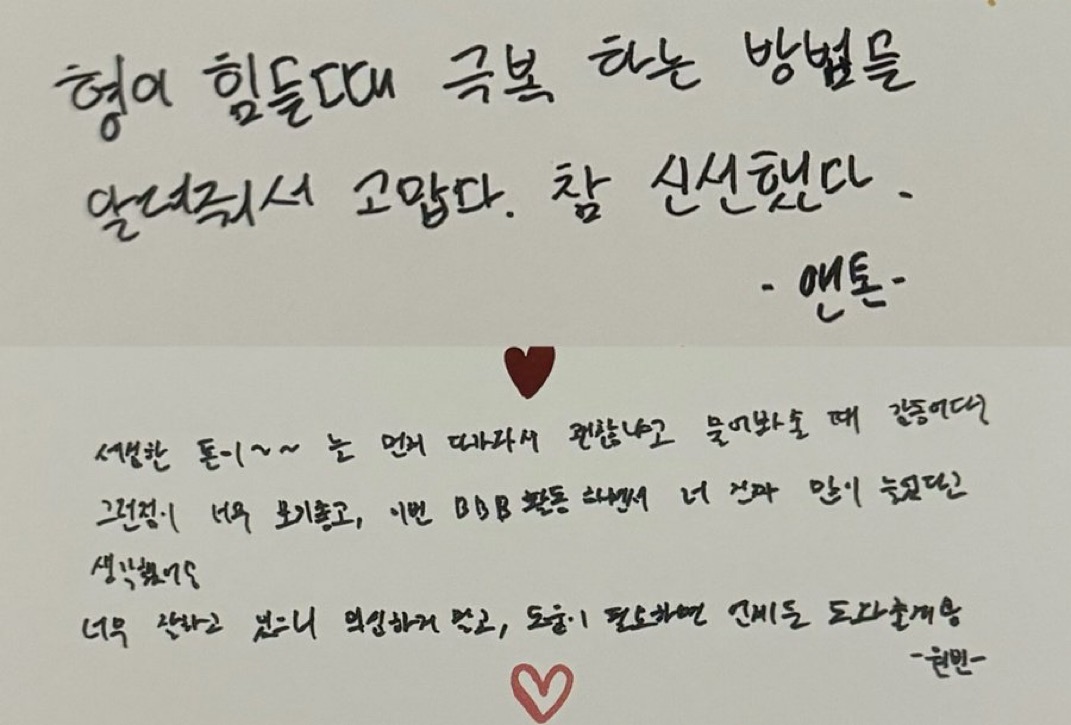 형이 힘들때 극복 하는 방법들
알려줘서 고맙다. 참 신선했다.
- 앤톤 -
섬세한 톤이~~ 는 먼저 다가와서 괜찮냐고 물어봐줄 때 감동이다
그런점이 너무 보기좋고, 이번 BBB 활동 하면서 너 진짜 많이 늘었다고
생각했어
너무 잘하고 있으니 의심하지 말고, 도움이 필요하면 언제든 도와줄게용
- 원빈 -